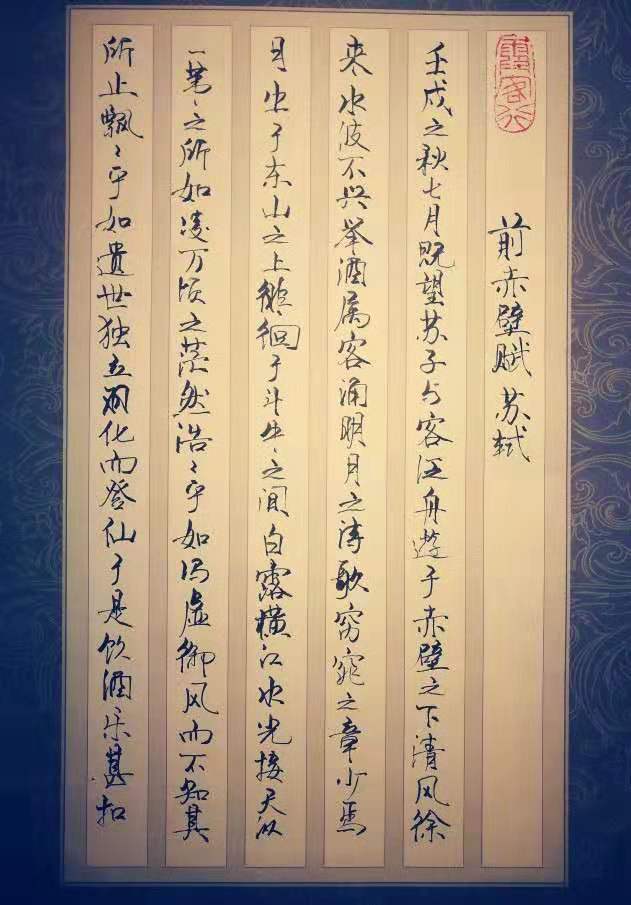 客行
前赤壁赋 苏轼
壬戌之秋七月既望苏子与客泛舟遊于赤壁之下清风徐
来水波不兴举酒属客诵明月之诗歌窈窕之章少焉
月出于东山之上徘徊于斗牛之间白露横江水光接天纵
一苇〻之所如凌万顷之茫然浩〻乎如冯虚御风而不知其
所止飘〻乎如遗世独立羽化而登仙于是饮酒乐甚扣